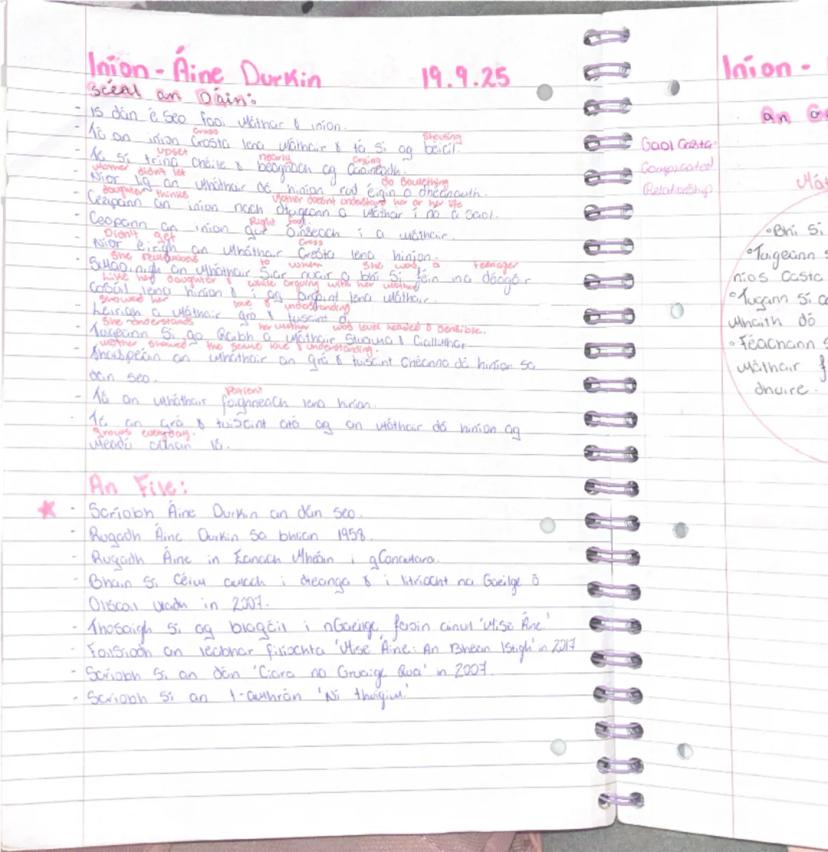 Iníon - Áine Durkin 19.9.25
Scéal an Dáin:
- Is dán é seo faoi mháthair & iníon.
Cross Shouting
- Tá an iníon Crosta lena máthair & tá sí ag béicíl.
upset nearly Crying
- Tá sí trína chéile & beagnach ag Caoineadh.
Mother didn't let do something
- Níor lig an mháthair dá hiníon rud éigin a dhéanamh.
daughter thinks Mother doesn't understand her or her life
- Ceapann an iníon nach dtuigeann a máthair í nó a saol.
Right fool
- Ceapann an iníon gur óinseach í a máthair.
Didn't get Cross
- Níor éirigh an mháthair Crosta lena hiníon.
She remembered to when She was a teenager
- an mháthair Siar nuair a bhí sí féin ina déagóir
Like her daughter & arguing with her mother
Cosúil lena hiníon & í ag argóint lena máthair.
showed her love & understanding
- Léirigh a máthair grá & tuiscint di.
She understands her mother was level headed & sensible.
- Tuigeann Sí go Raibh a máthair Stuama & Ciallmhar.
mother showed the same love & understanding.
- an mháthair an grá & tuiscint Chéanna dá hiníon sa
dán seo.
Patient
- Tá an mháthair foighneach lena hiníon.
- Tá an grá & tuiscint atá ag an máthair dá hiníon ag
grows everyday.
méadú lá.
An File:
- Scríobh Áine Durkin an dán seo.
- Rugadh Áine Durkin sa bhliain 1958.
- Rugadh Áine in Eanach Mheáin i gConamara.
- Bhain Sí Céim amach i dteanga & i litríocht na Gaeilge ó
Oiscail in 2007.
- Thosaigh Sí ag blagáil i nGaeilge faoin ainm 'Mise Áine'
- an leabhar filíochta 'Mise Áine: An Bhean Istigh' in 2017
- Scríobh Sí an dán 'Ciara na Gruaige Rua' in 2007.
- Scríobh Sí an t-amhrán 'Ní thuigim'
Iníon -
An G
Gaol Casta:
Complicated
Relationship
Mát
• Bhí Sí
• Tuigeann S
níos Casta
• Tugann Sí
mhaith dó
• Féachann S
máthair f
dhuire.